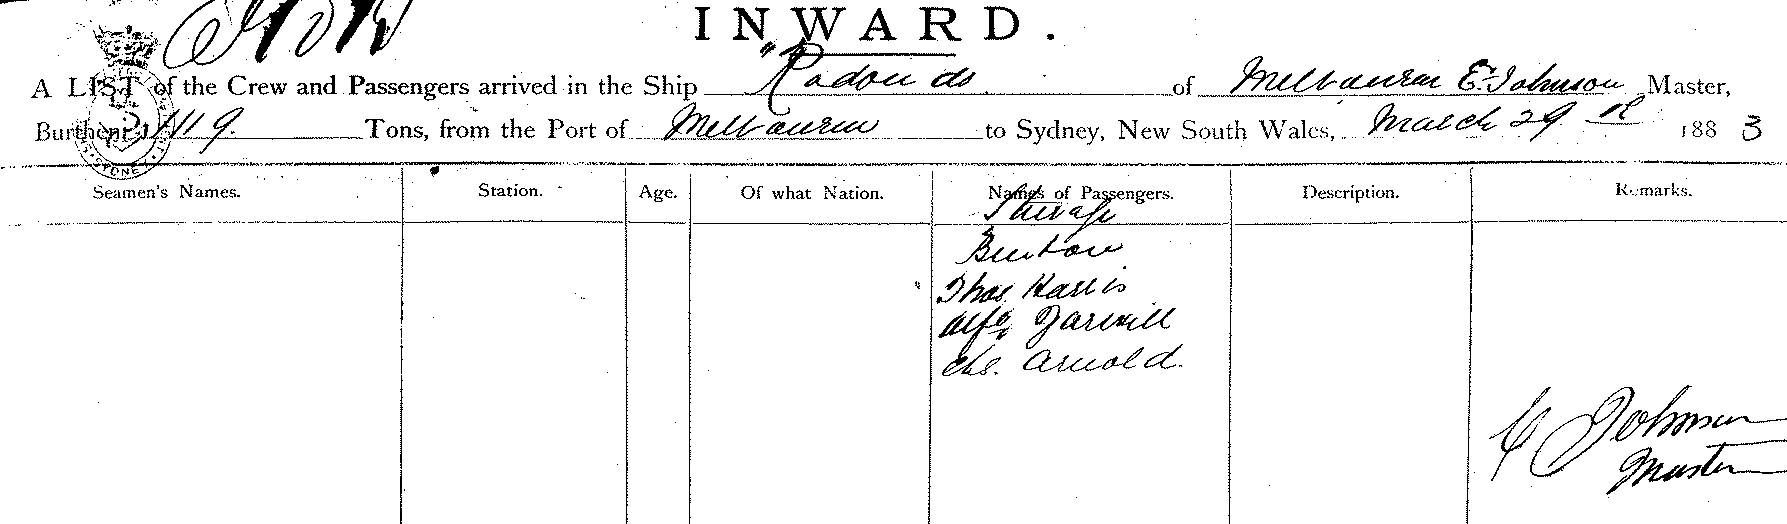 INWARD.
A LIST of the Crew and Passengers arrived in the Ship "Rodondo of Melbourne E. Johnson Master,
Burthen 1119 Tons, from the Port of Melbourne to Sydney, New South Wales, March 29 1883
Seamen's Names. Station. Age. Of what Nation. Names of Passengers. Description. Remarks.
Steerage
Burton
Thos. Harris
Alfd
Chs. Arnold.
E Johnson
Master